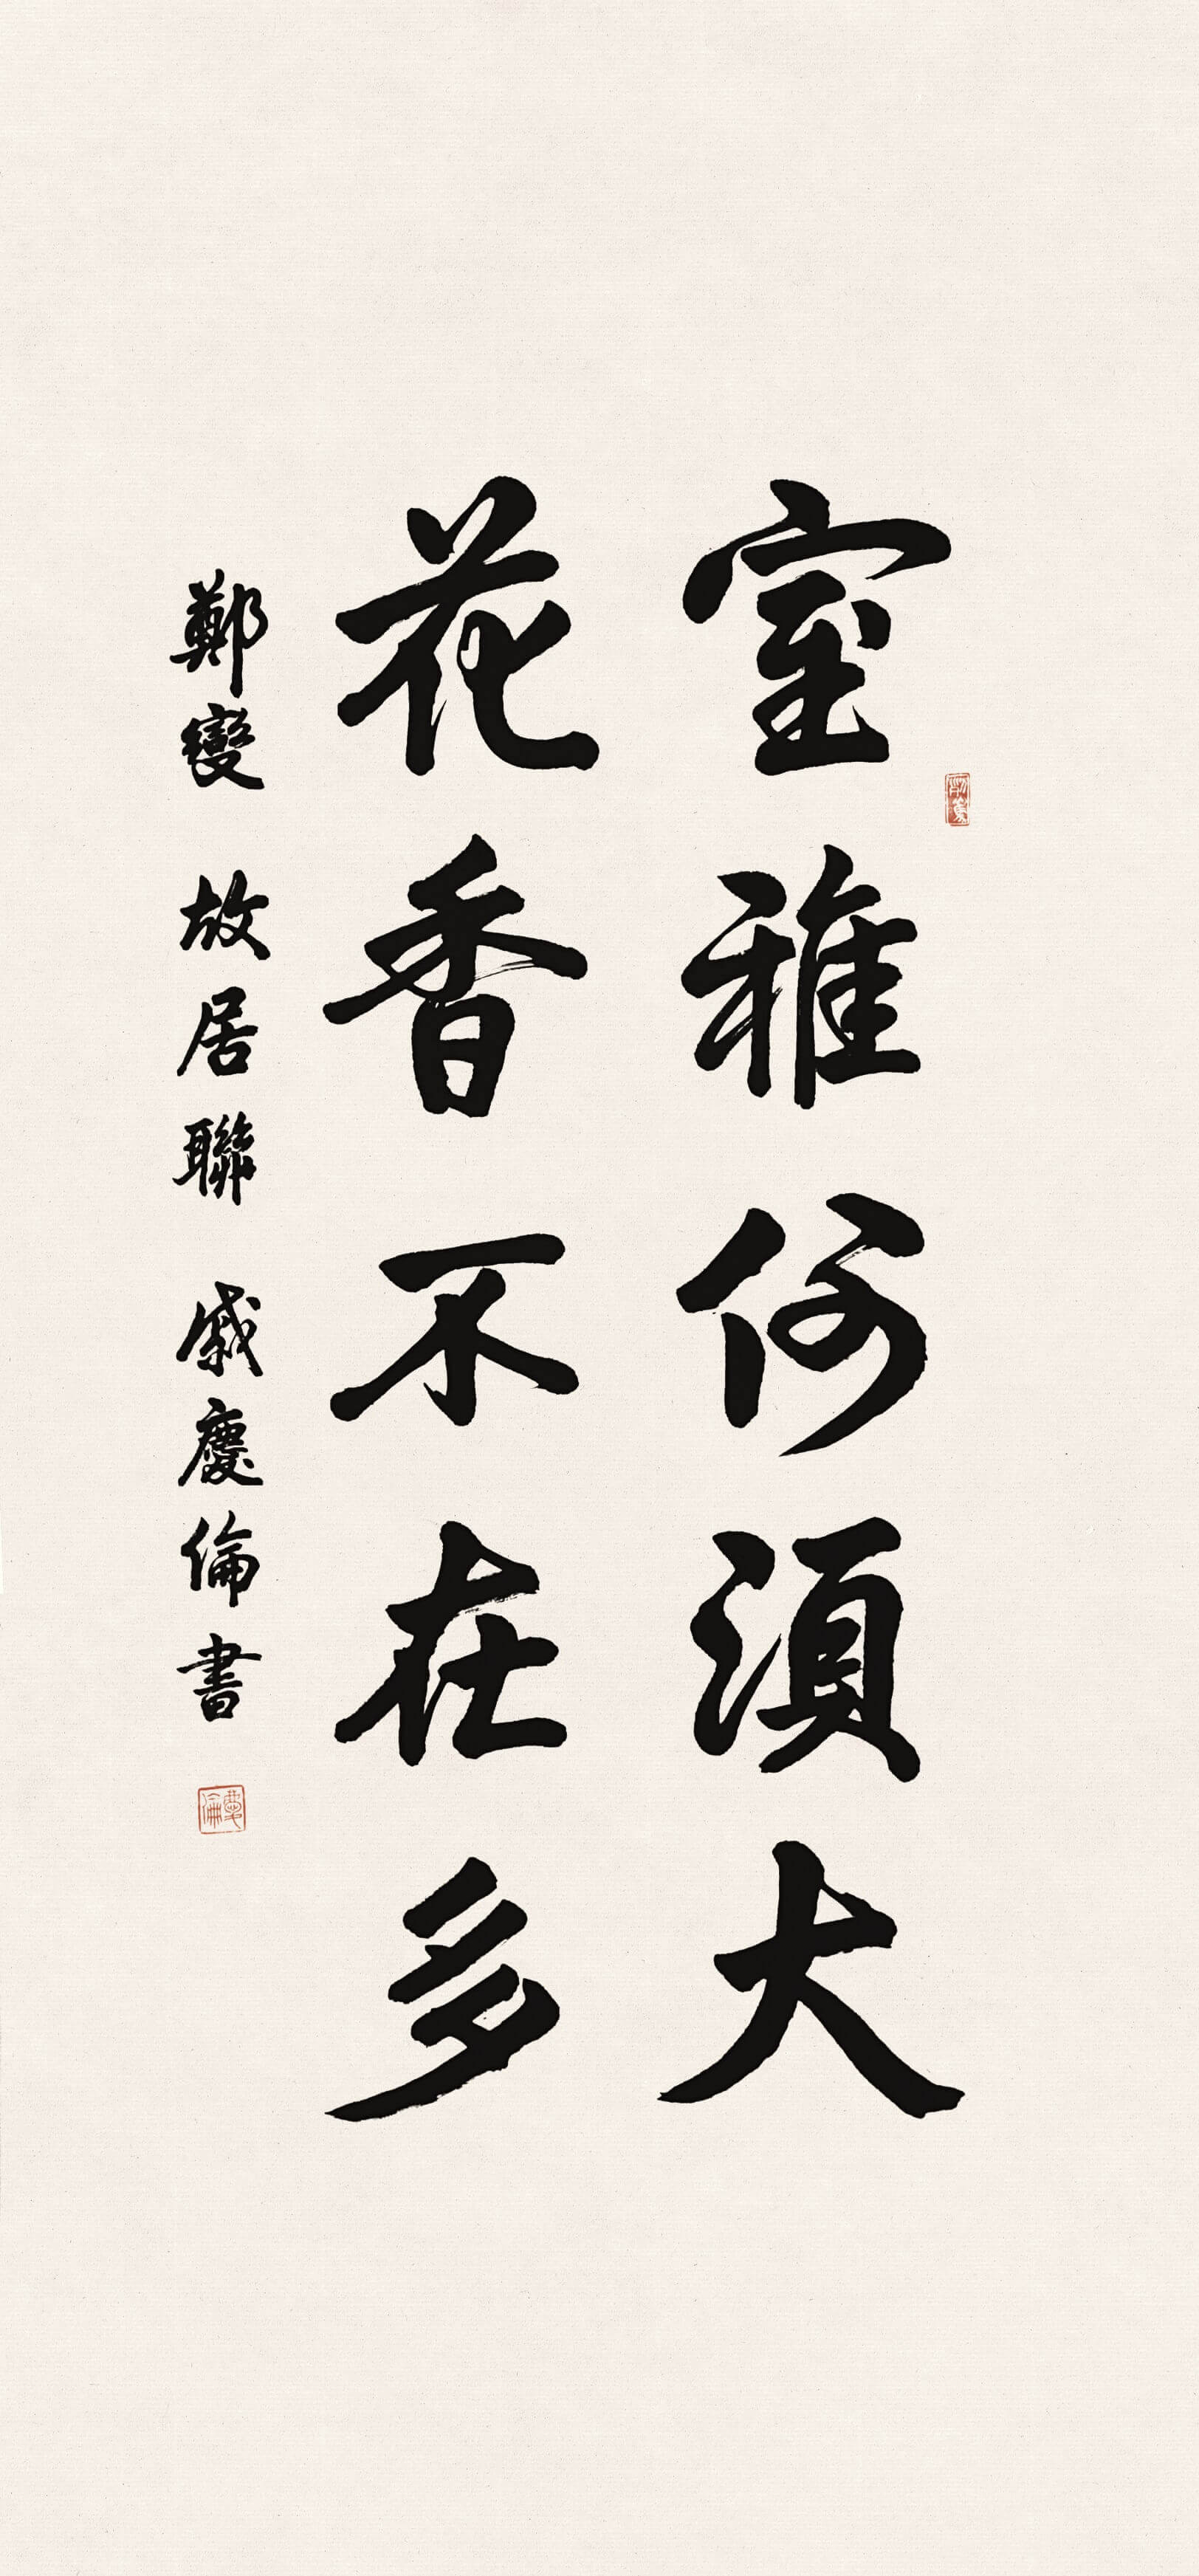 室雅何須大
花香不在多
鄭燮 故居聯 戚慶倫書
慶倫